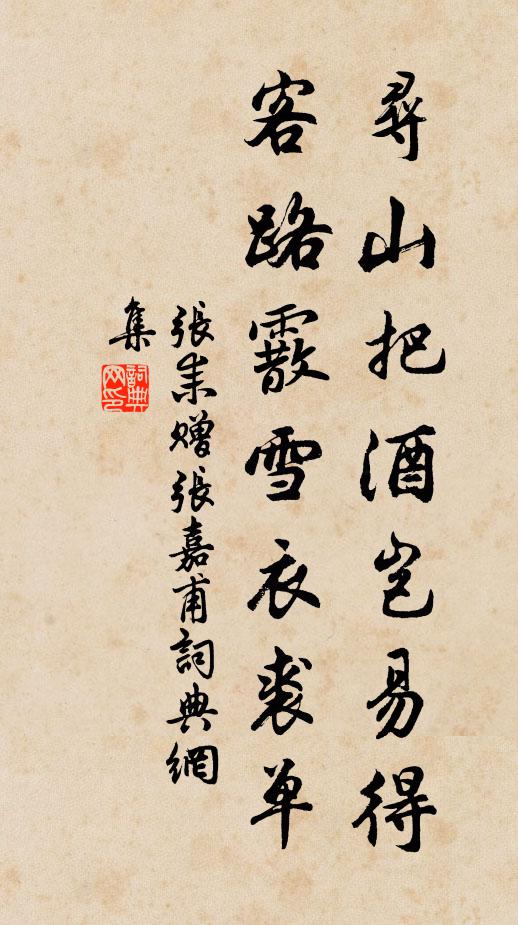 尋山把酒豈易得
客路霰雪衣裘單
張耒贈張嘉甫詞典網
集
詞典
网印